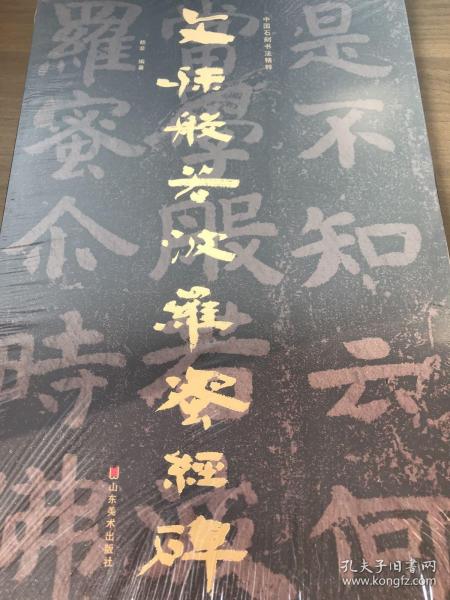 中国石刻书法精粹
文殊般若波羅蜜經碑
赖非 编著
山东美术出版社
是不知云何
當學般若波
羅蜜尒時佛
孔夫子旧书网
kongfz.com